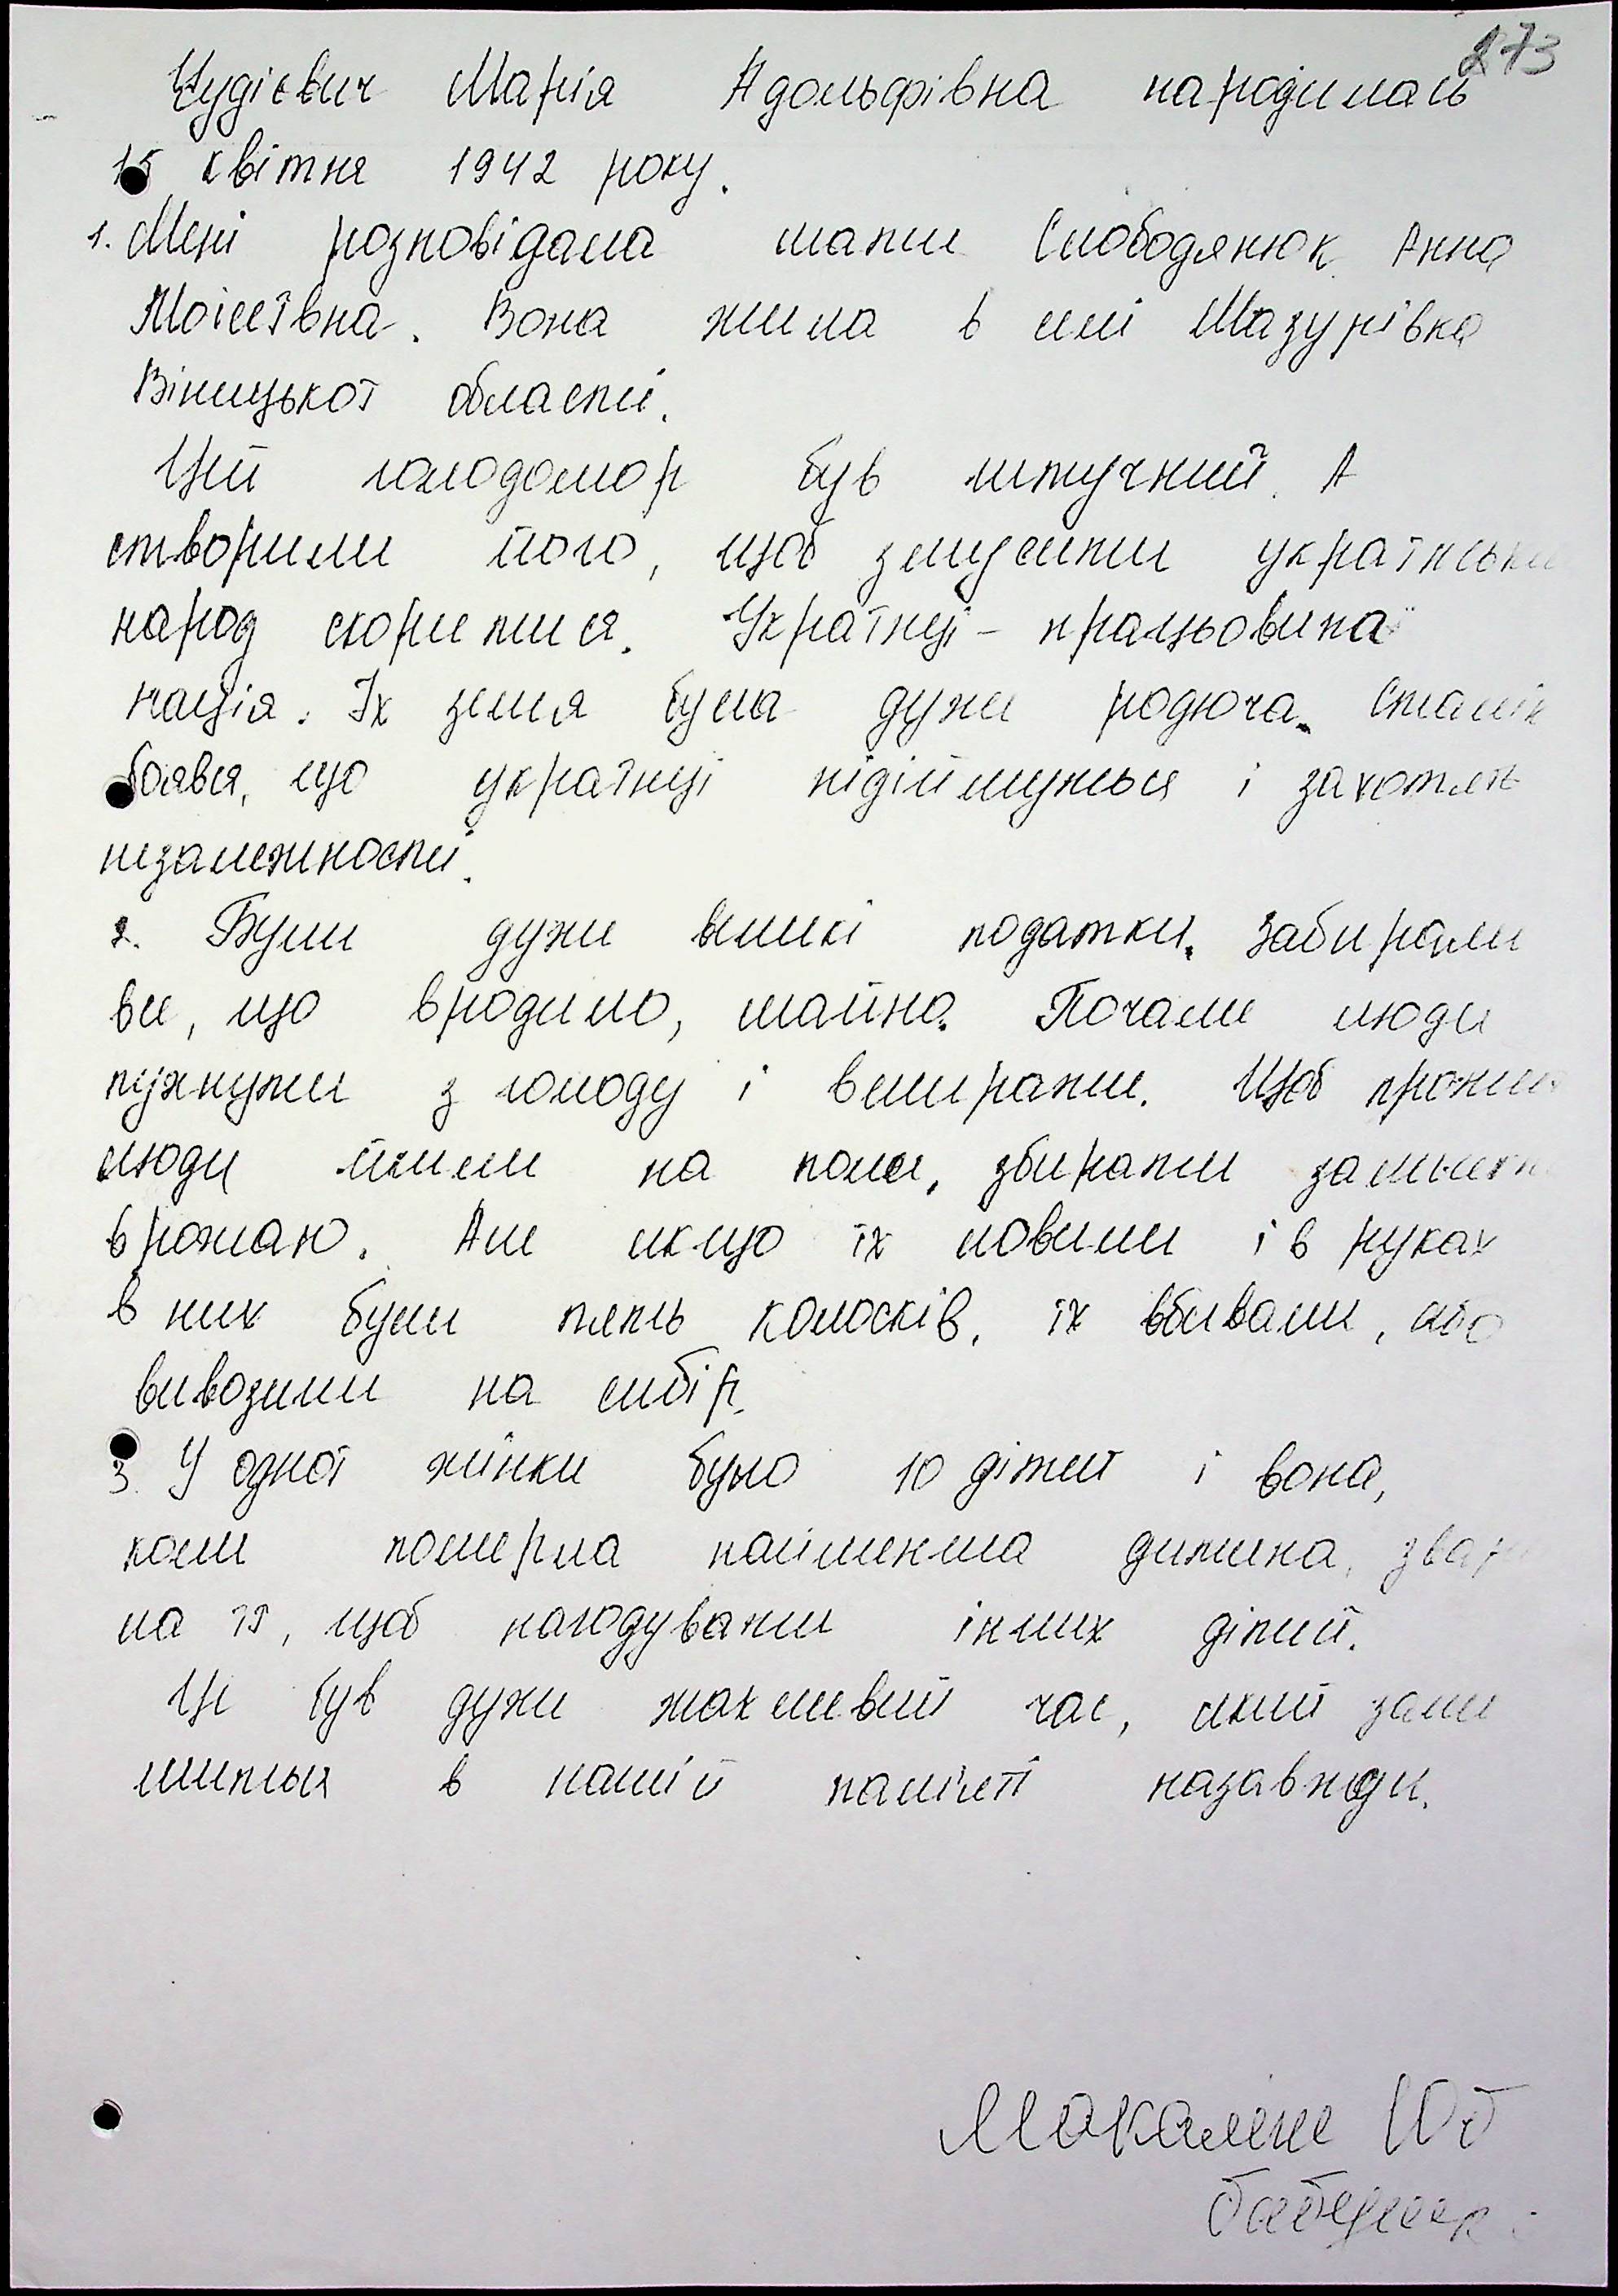 273
Чудієвич Марія Адольфівна народилась
15 квітня 1942 року.
1. Мені розповідала мати Слободянюк Анна
Моісеївна. Вона жила в селі Мазурівка
Віницької області.
Цей голодомор був штучний. А
створили його, щоб змусити українськи
народ скоритися. Українці - працьовита
нація. Їх земля була дуже родюча. Сталін
боявся, що українці підіймуться і захотять
незалежності.
2. Були дуже великі податки. Забирали
все, що вродило, майно. Почали люди
пухнути з голоду і вмирати. Щоб прожити
люди йшли на поля, збирати залишки
врожаю. Але якщо їх ловили і в руках
в них були пять колосків, їх вбивали, або
вивозили на сибір.
3. У одної жінки було 10 дітей і вона,
коли померла найменша дитина, звари
ла її, щоб нагодувати інших дітей.
Це був дуже жахливий час, який зали
шиться в нашій памʼяті назавжди.